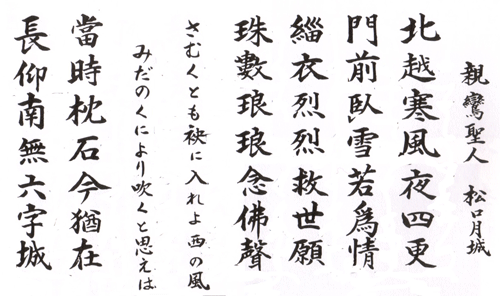 親鸞聖人 松口月城
北越寒風夜四更
門前臥雪若爲情
緇衣烈烈救世願
珠數琅琅念佛聲
さむくとも袂に入れよ西の風
みだのくにより吹くと思えは
當時枕石今猶在
長仰南無六字城